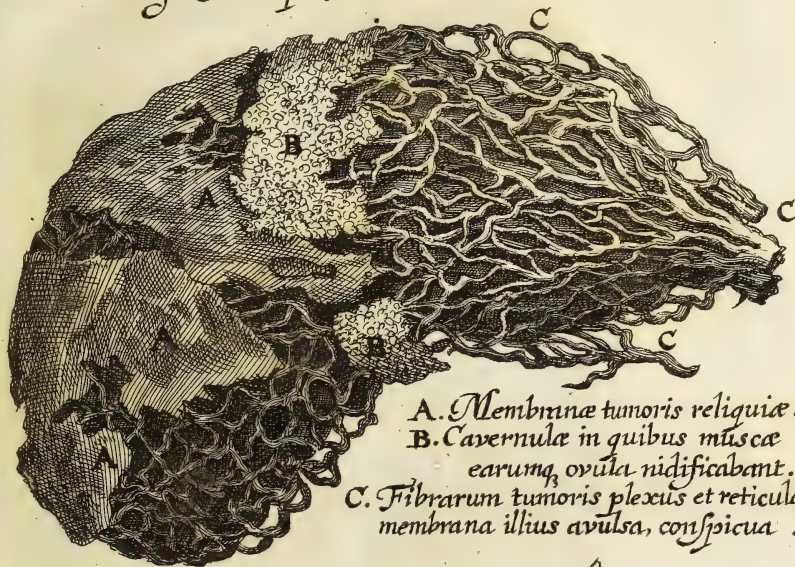 C
A
B
A
C
A
B
C
A
A. Membranæ tumoris reliquiæ.
B. Cavernulæ in quibus muscæ
earumq, ovula nidificabant.
C. Fibrarum tumoris plexus et reticula
membrana illius avulsa, conſpicua.